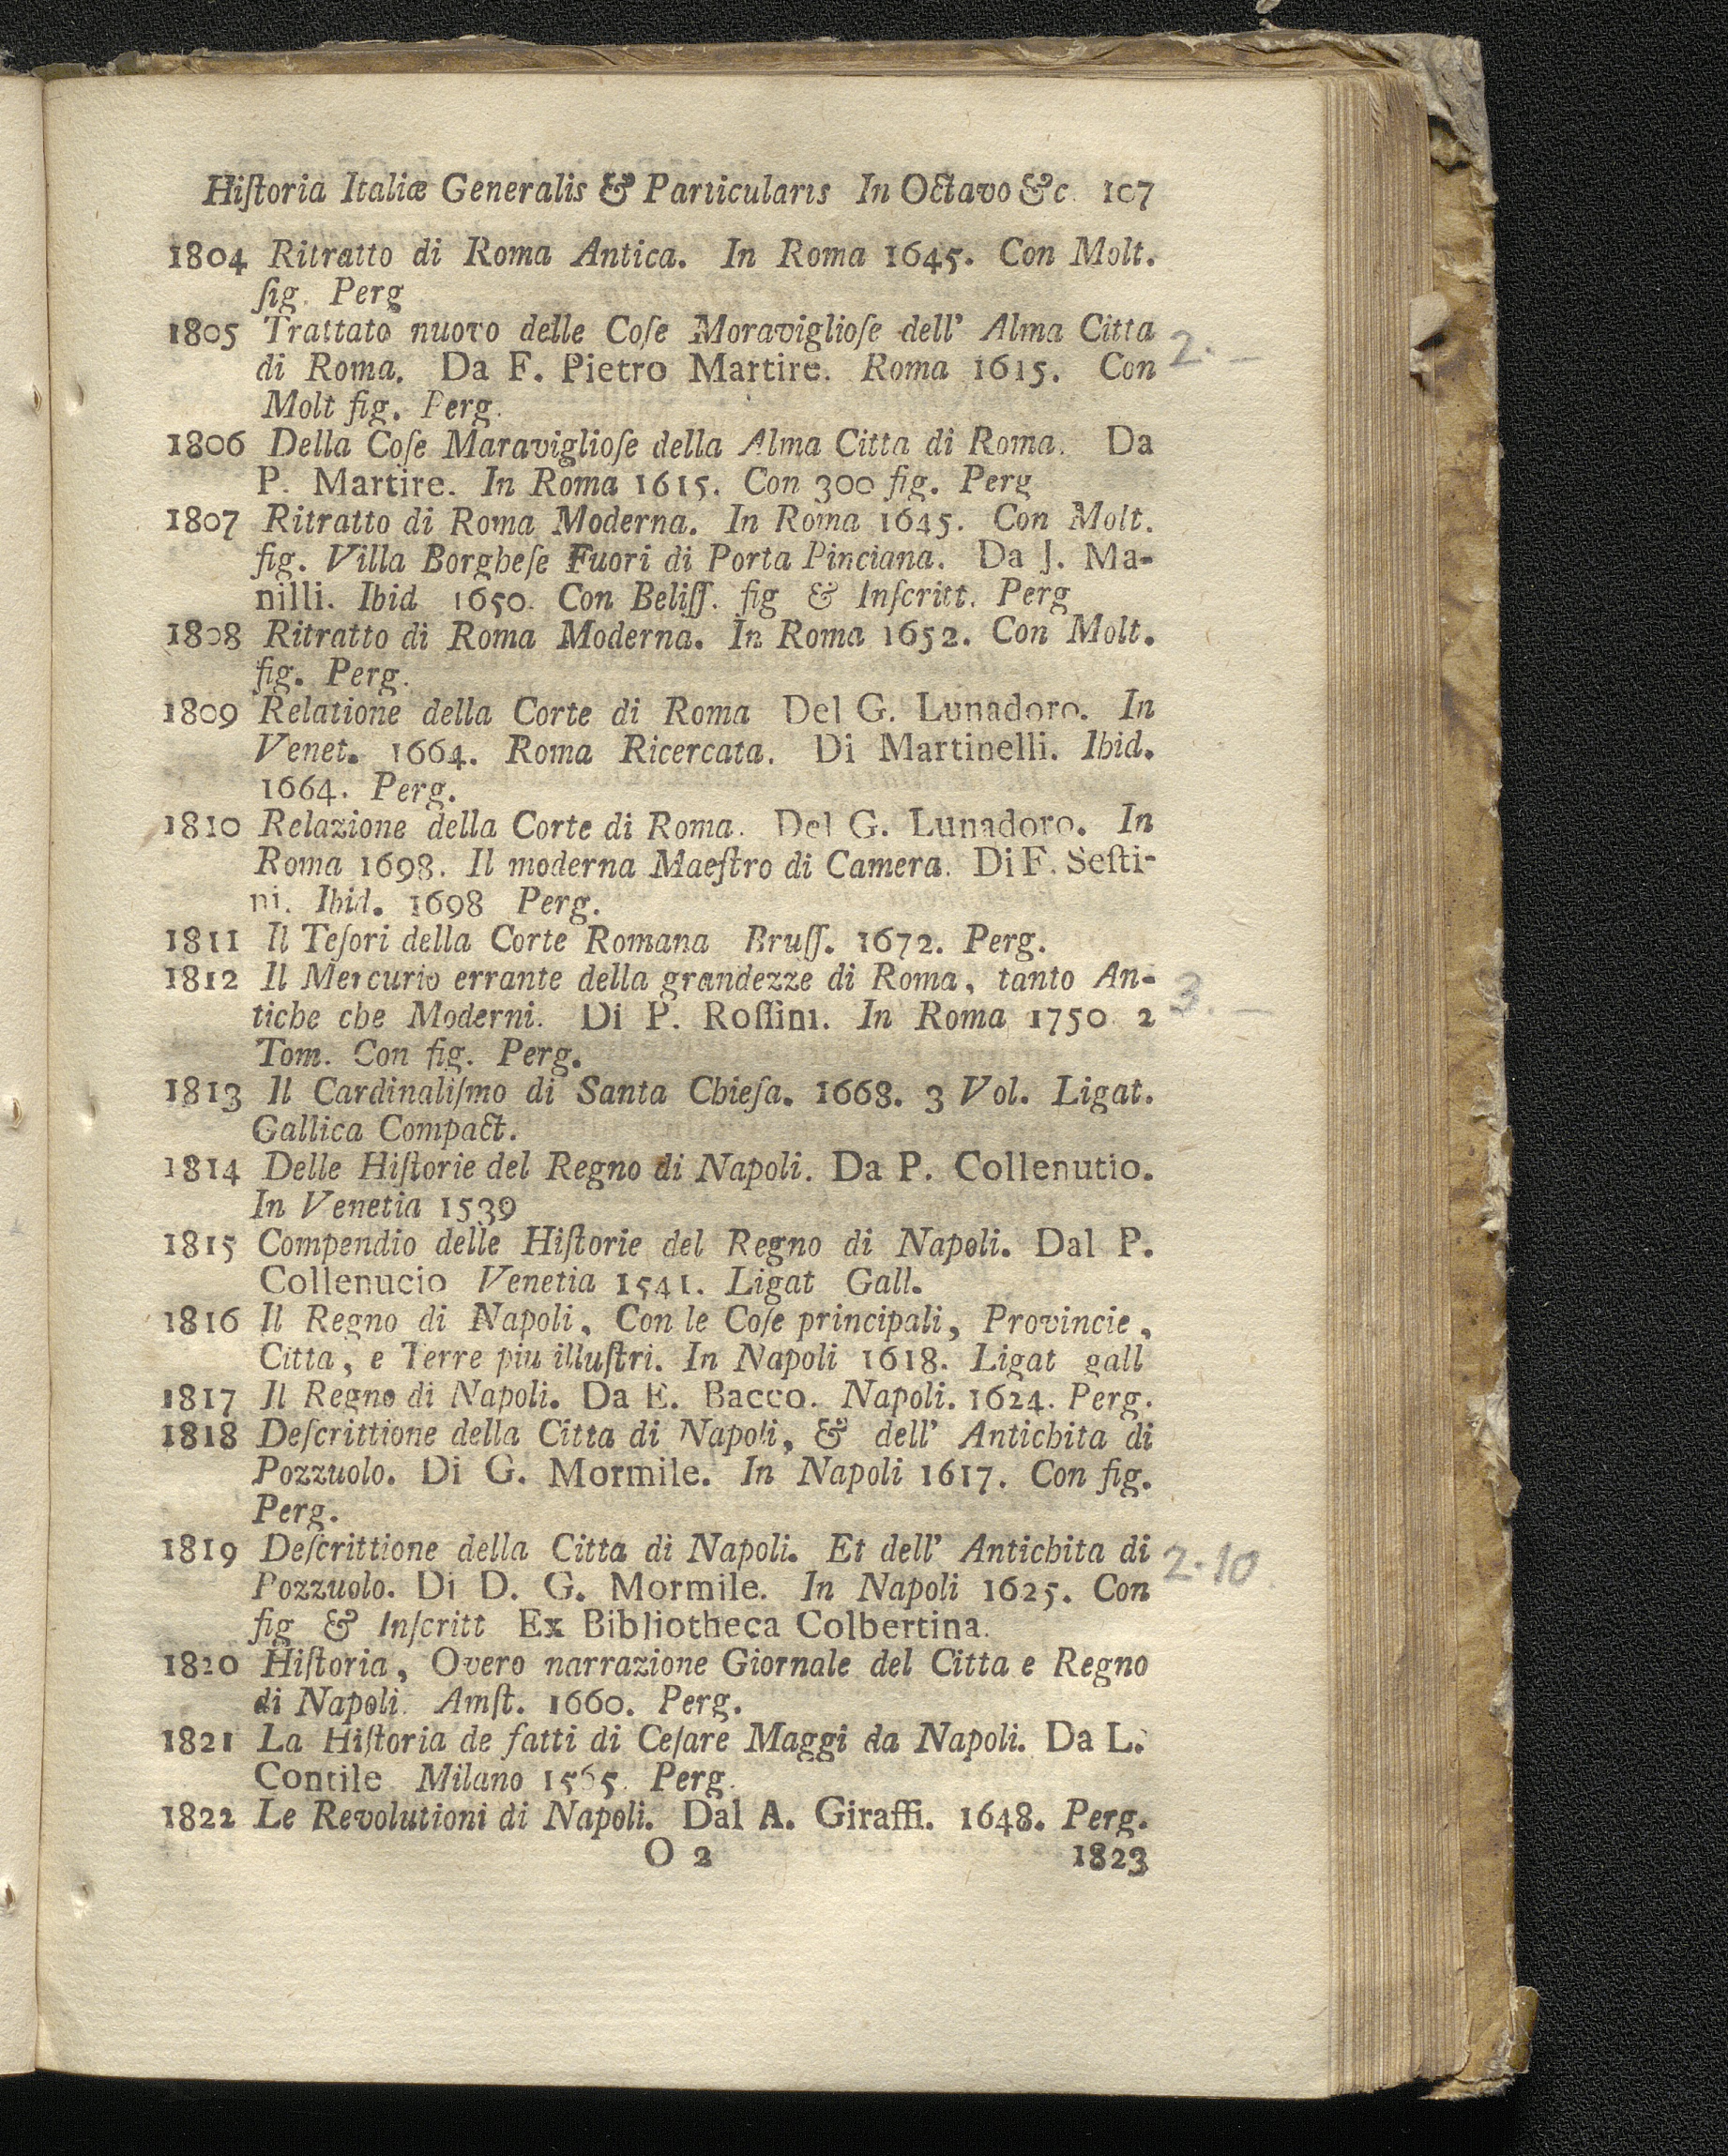 Hiſtoria Italiæ Generalis & Particularis In Octavo &c. 107
1804 Ritratto di Roma Antica. In Roma 1645. Con Molt.
fig. Perg
1805 Trattato nuovo delle Coſe Moraviglioſe dell' Alma Citta
di Roma. Da F. Pietro Martire. Roma 1615. Con
2. —
Molt fig. Perg.
1806 Della Coſe Maraviglioſe della Alma Citta di Roma. Da
P. Martire. In Roma 1615. Con 300 fig. Perg
1807 Ritratto di Roma Moderna. In Roma 1645. Con Molt.
fig. Villa Borgheſe Fuori di Porta Pinciana. Da J. Ma-
nilli. Ibid 1650. Con Beliſſ. fig & Inſcritt. Perg
1808 Ritratto di Roma Moderna. In Roma 1652. Con Molt.
fig. Perg.
1809 Relatione della Corte di Roma Del G. Lunadoro. In
Venet. 1664. Roma Ricercata. Di Martinelli. Ibid.
1664. Perg.
1810 Relazione della Corte di Roma. Del G. Lunadoro. In
Roma 1698. Il moderna Maeſtro di Camera. Di F. Seſti-
ni. Ibid. 1698 Perg.
1811 Il Teſori della Corte Romana Bruſſ. 1672. Perg.
1812 Il Mercurio errante della grandezze di Roma, tanto An-
tiche che Moderni. Di P. Roſſini. In Roma 1750. 2
3. —
Tom. Con fig. Perg.
1813 Il Cardinaliſmo di Santa Chieſa. 1668. 3 Vol. Ligat.
Gallica Compact.
1814 Delle Hiſtorie del Regno di Napoli. Da P. Collenutio.
In Venetia 1539
1815 Compendio delle Hiſtorie del Regno di Napoli. Dal P.
Collenucio Venetia 1541. Ligat Gall.
1816 Il Regno di Napoli, Con le Coſe principali, Provincie,
Citta, e Terre piu illuſtri. In Napoli 1618. Ligat gall
1817 Il Regno di Napoli. Da E. Bacco. Napoli. 1624. Perg.
1818 Deſcrittione della Citta di Napoli, & dell' Antichita di
Pozzuolo. Di G. Mormile. In Napoli 1617. Con fig.
Perg.
1819 Deſcrittione della Citta di Napoli. Et dell' Antichita di
Pozzuolo. Di D. G. Mormile. In Napoli 1625. Con
2.10
fig & Inſcritt Ex Bibliotheca Colbertina.
1820 Hiſtoria, Overo narrazione Giornale del Citta e Regno
di Napoli. Amſt. 1660. Perg.
1821 La Hiſtoria de fatti di Ceſare Maggi da Napoli. Da L.
Contile Milano 1565. Perg.
1822 Le Revolutioni di Napoli. Dal A. Giraffi. 1648. Perg.
O 2 1823